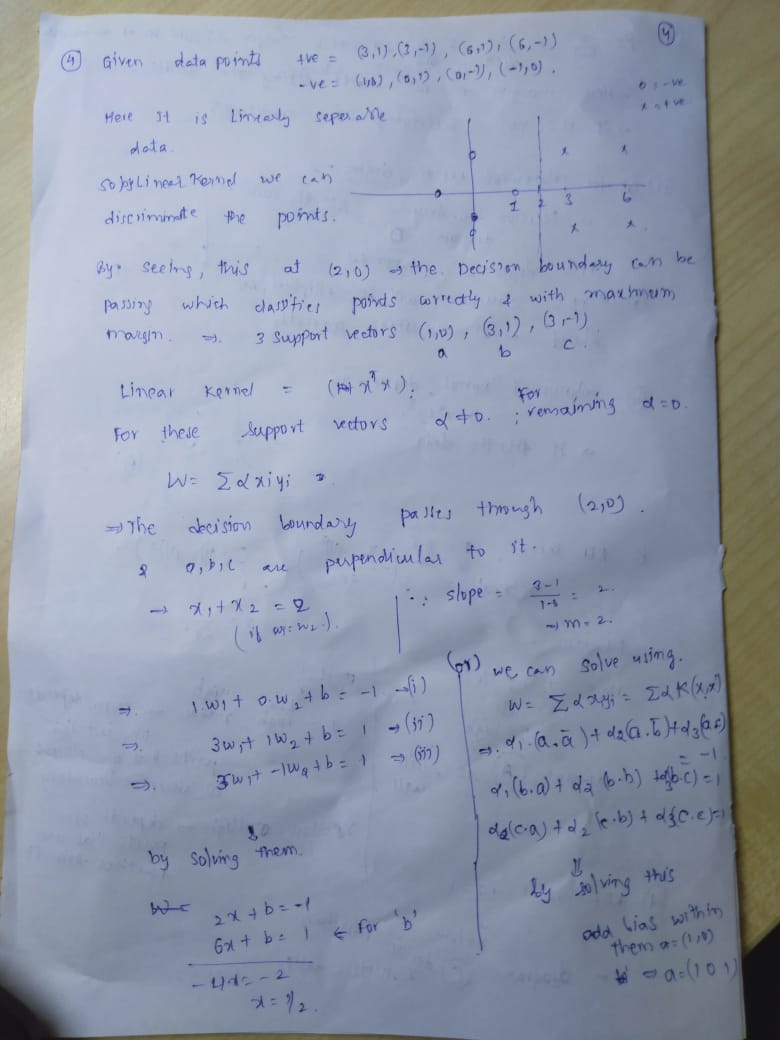 4
④ Given data points +ve = (3,1), (3,-1), (6,1), (6,-1)
-ve = (1,0), (0,1), (0,-1), (-1,0).
o = -ve
x = +ve
Here It is Linearly seperable
data.
so by Linear Kernel we can
discriminate the points.
1 2 3 6
By seeing, this at (2,0) → the Decision boundary can be
passing which classifies points correctly & with maximum
margin. ⇒ 3 support vectors (1,0), (3,1), (3,-1)
a b c
Linear Kernel = (x^T x);
For these support vectors α ≠ 0. ; For remaining α = 0.
W = Σ α xi yi
⇒ The decision boundary passes through (2,0).
& a, b, c are perpendicular to it.
→ x1 + x2 = 2
(if w1 = w2).
∴ slope = = 2.
→ m = 2.
⇒ 1.w1 + 0.w2 + b = -1 → (i)
⇒ 3w1 + 1w2 + b = 1 → (ii)
⇒ 3w1 + -1w2 + b = 1 ⇒ (iii)
by solving them.
2x + b = -1
6x + b = 1 ← For 'b'
-4x = -2
x = 1/2.
(or) we can solve using.
W = Σ α xi yi = Σ α K(x, x)
⇒ α1 (a.a) + α2 (a.b) + α3 (a.c)
= -1
α1 (b.a) + α2 (b.b) + α3 (b.c) = 1
(c.a) + α2 (c.b) + α3 (c.c) = 1
by solving this
add bias within
them a = (1,0)
⇒ a = (1 0 1)